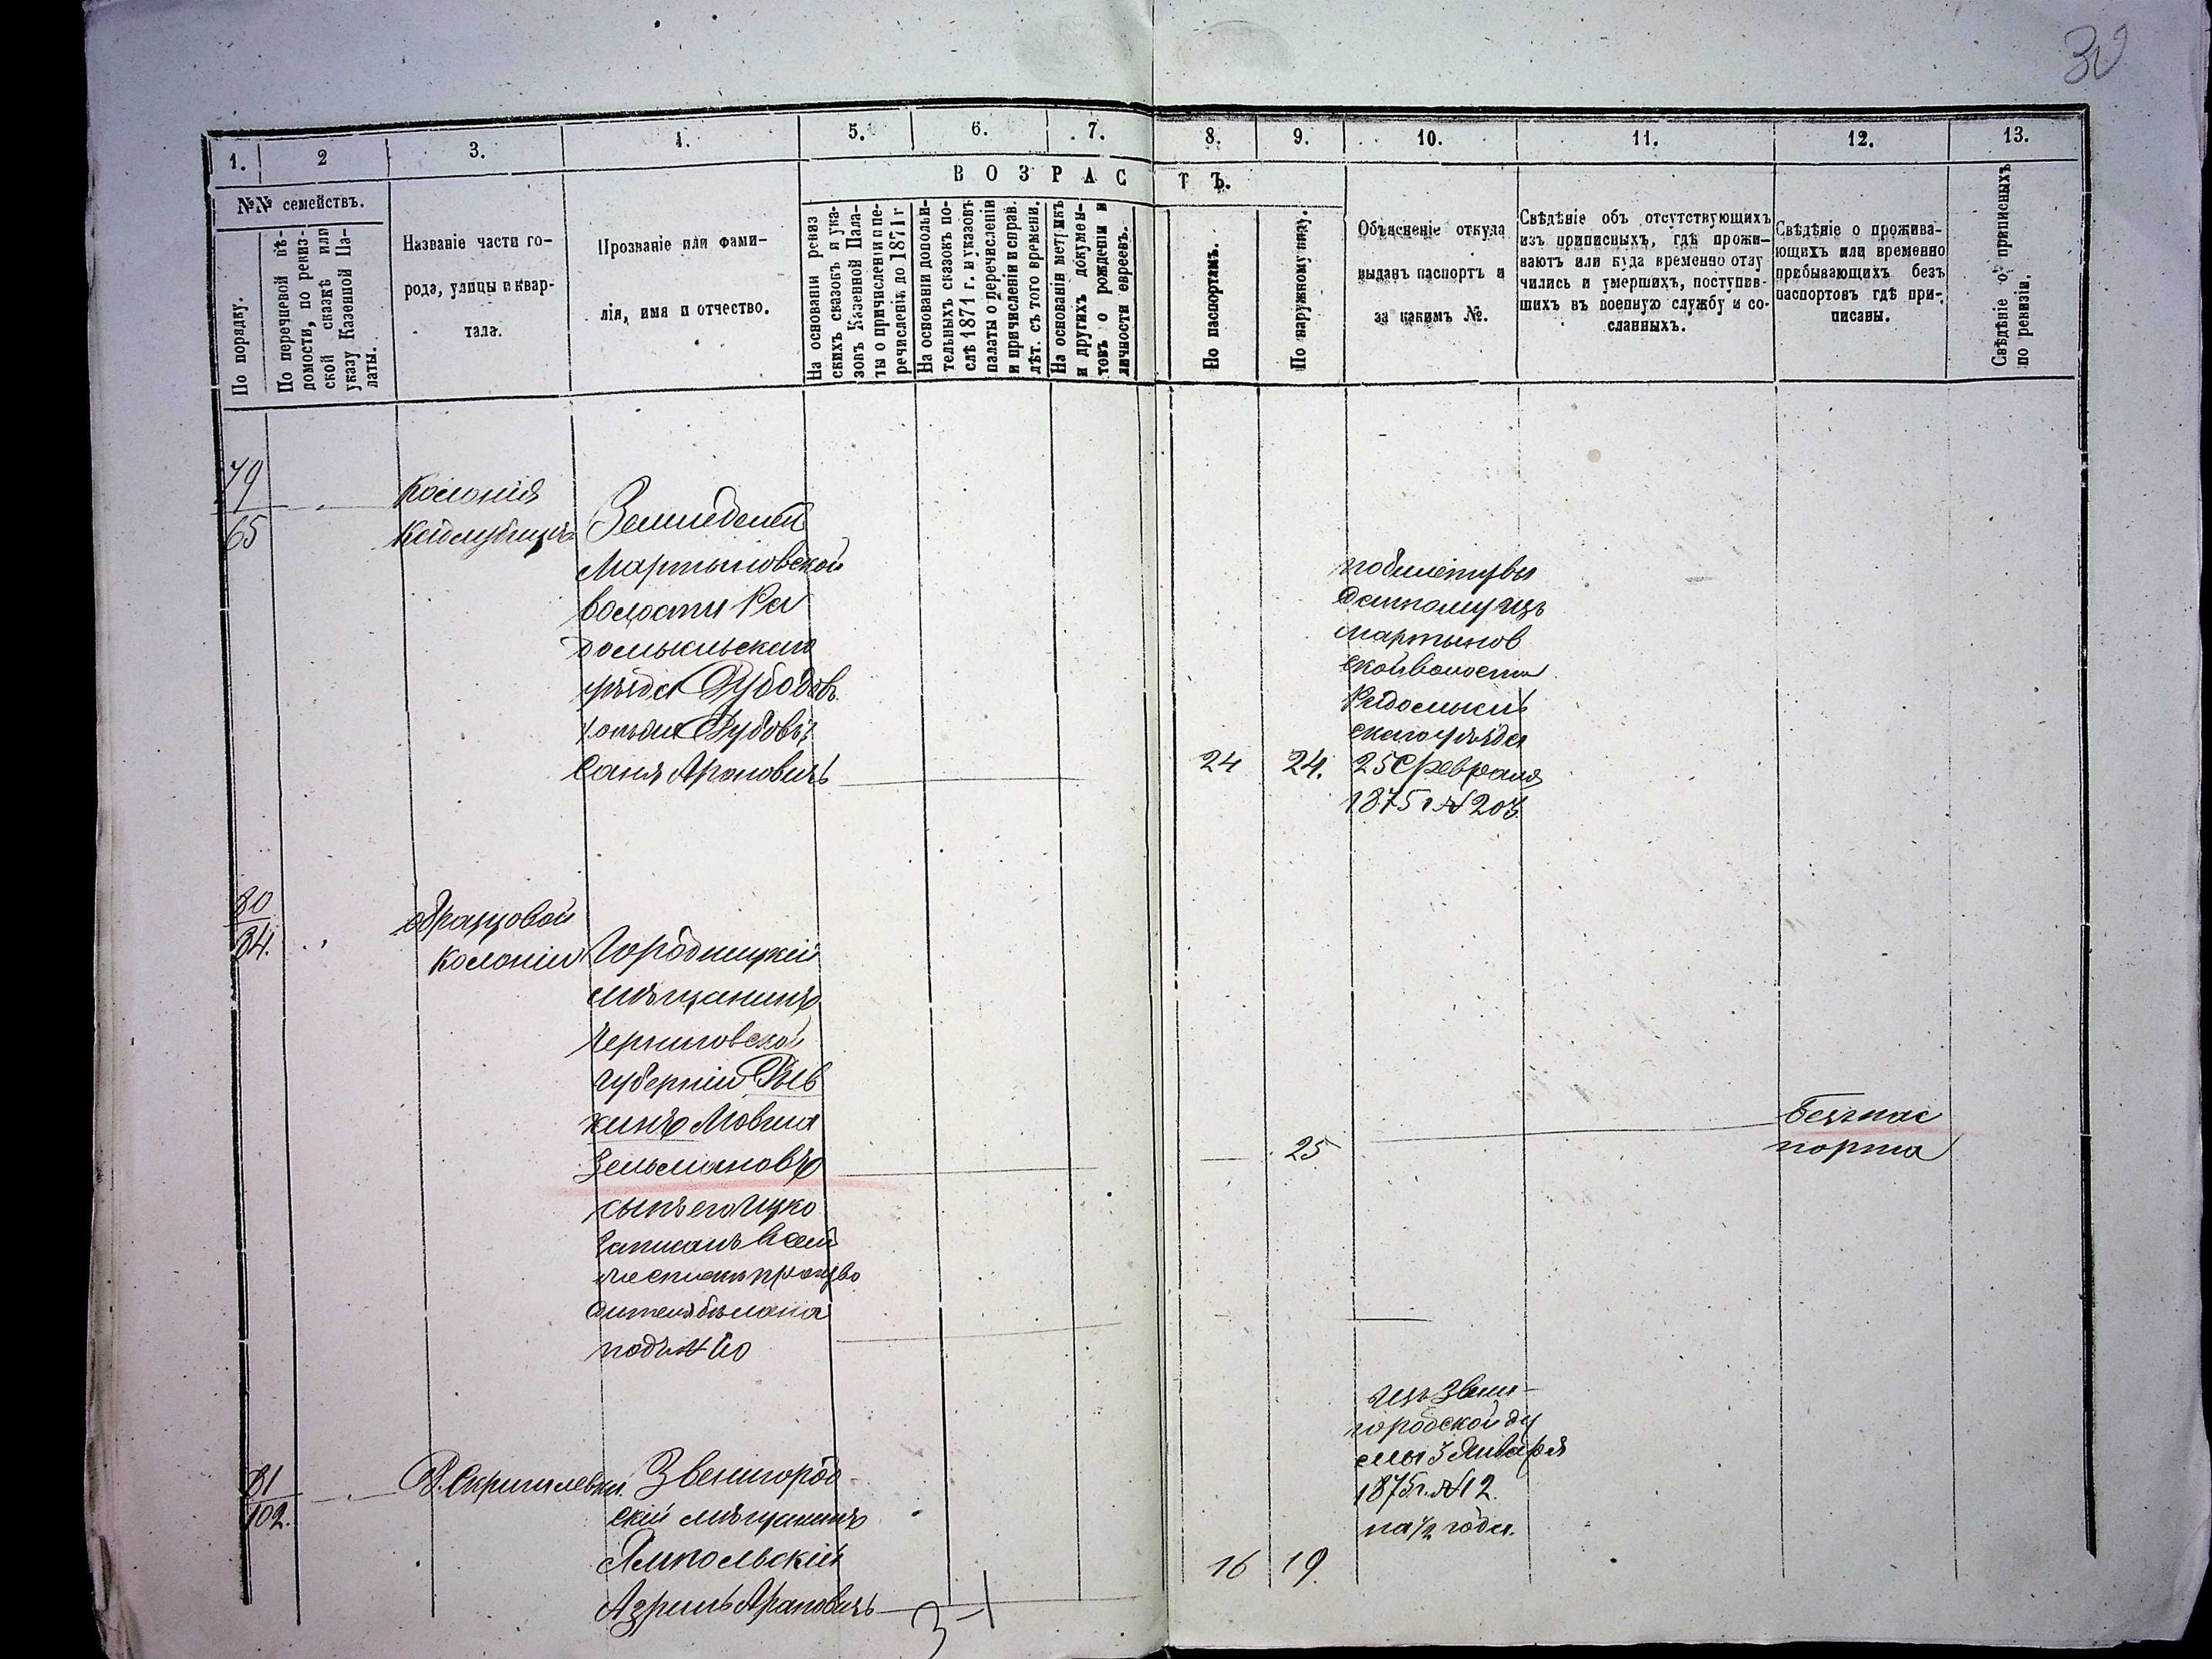 30
1.
2
3.
4.
5.
6.
7.
8.
9.
10.
11.
12.
13.
№№ семействъ.
По порядку.
По перечневой вѣ-
домости, по ревиз-
ской сказкѣ или
указу Казенной Па-
латы.
Названіе части го-
рода, улицы и квар-
тала.
Прозваніе или фами-
лія, имя и отчество.
ВОЗРАСТЪ.
На основаніи ревиз
скихъ сказокъ и ука-
зовъ Казенной Пала-
ты о причисленіи и пе-
речисленіи до 1871 г
На основаніи дополни-
тельныхъ сказокъ по-
слѣ 1871 г. и указовъ
палаты о перечисленіи
и причисленіи и справ.
лѣт. съ того времени.
На основаніи метрикъ
и другихъ докумен-
товъ о рожденіи и
личности евреевъ.
По паспортамъ.
По наружному виду.
Объясненіе откуда
выданъ паспортъ и
за какимъ №.
Свѣдѣніе объ отсутствующихъ
изъ приписныхъ, гдѣ прожи-
ваютъ или куда временно отлу
чились и умершихъ, поступив-
шихъ въ военную службу и со-
сланныхъ.
Свѣдѣніе о прожива-
ющихъ или временно
пребывающихъ безъ
паспортовъ гдѣ при-
писаны.
Свѣдѣніе о приписныхъ
по ревизіи.
79
65
Колонія
Земледелец
Мартыновской
волости Ра
домысльскаго
уѣзда
Ароновичь
24
24.
по билету вы
данному изъ
Мартынов
ской волости
Радомысль
скаго уѣзда
25 Февраля
1875 г № 203
80
34.
образцовой
колоніи
Городницкій
мѣщанинъ
Черниговской
губерніи Рыв
кинъ Мовша
Зельмановъ
сынъ его Ицко
записанъ в сем
подъ №
25
Безъ пас
порта
81
102.
Звенигород
скій мѣщанинъ
Ямпольскій
Азриль Ароновичь
3-1
16
19.
Изъ Звени-
городской ду
мы 3 Января
1875 г. № 12.
на 1/2 года.